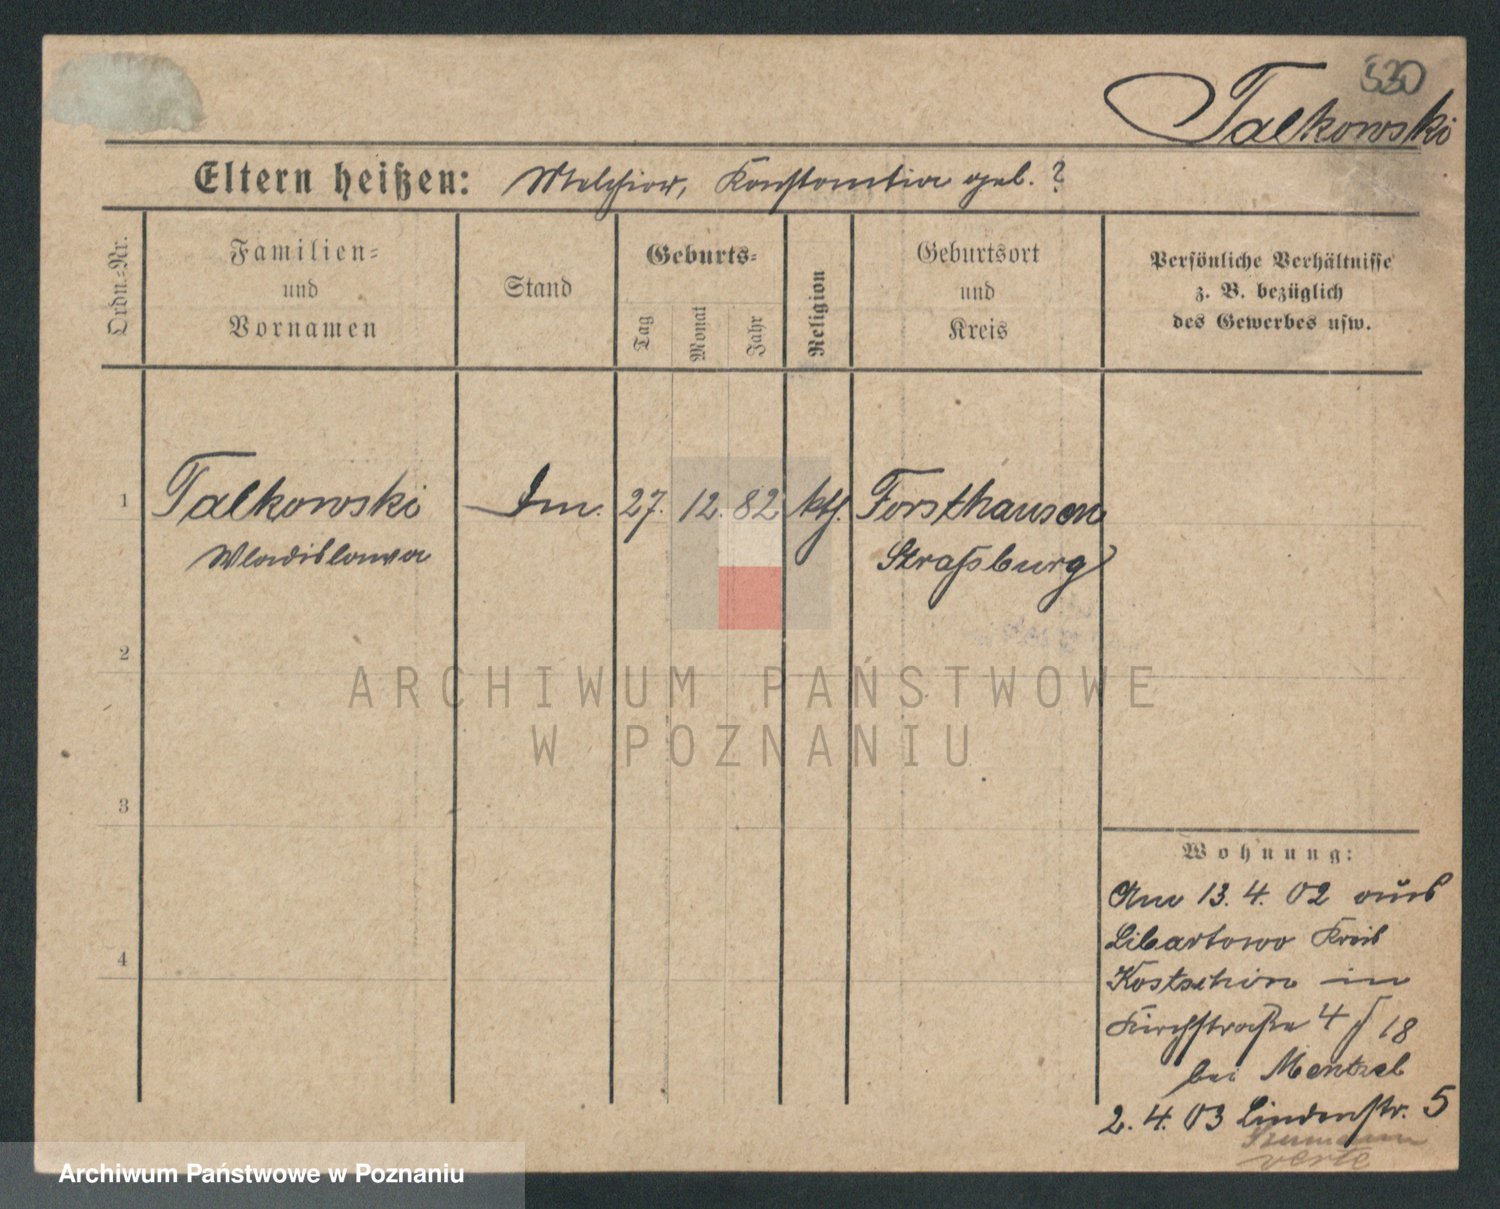 530
Talkowski
Eltern heißen: Melchior, Konstantia geb. ?
Ordn.-Nr.
Familien-
und
Vornamen
Stand
Geburts-
Tag
Monat
Jahr
Religion
Geburtsort
und
Kreis
Persönliche Verhältnisse
z. B. bezüglich
des Gewerbes usw.
1 Talkowski 27. 12. 82 kth. Forsthausen
Wladislawa Straßburg
2
ARCHIWUM PAŃSTWOWE
W POZNANIU
3
Wohnung:
Am 13. 4. 02 aus
Libartowo Kreis
4
Kostschin in
Kirchstraße 4 / 18
bei Mentzel
2. 4. 03 Lindenstr. 5
verte
Archiwum Państwowe w Poznaniu